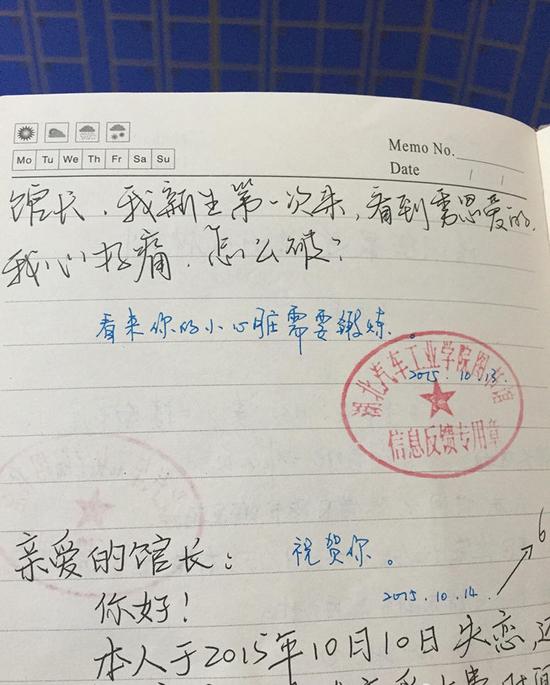 Memo No.
Mo Tu We Th Fr Sa Su
Date / /
馆长，我新生第一次来，看到秀恩爱的，
我心好痛．怎么破？
看来你的小心脏需要锻炼。
2015.10.13.
湖北汽车工业学院图书馆
信息反馈专用章
亲爱的馆长：
祝贺你。
6
你好！
2015.10.14.
本人于2015年10月10日失恋